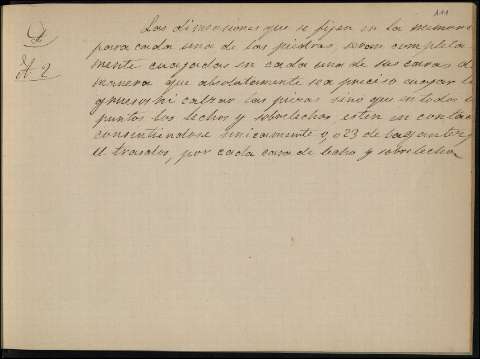 111
Las dimensiones que se fijan en la memoria
para cada una de las piedras, seran completa
mente cuajadas en cada una de sus caras de
manera que absolutamente sea preciso
ni calzar las piezas sino que en todos
puntos los lechos y sobrelechos esten en
consintiendose unicamente 0,023 de
el trasdos, por cada cara de lecho y sobrelecho
A 2